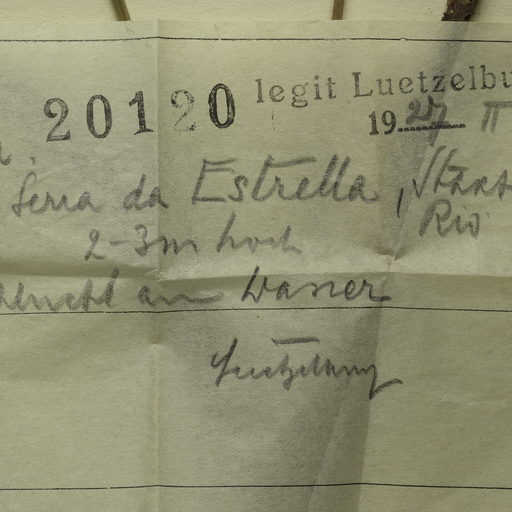 20120 legit Luetzelbu
1927 II
Serra da Estrella, Staat
Rio
2-3m hoch
am Wasser
Luetzelburg